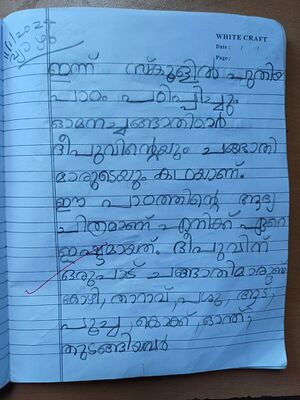 11/1/2024
വ്യാഴം
WHITE CRAFT
Date : / /
Page :
ഇന്ന് സ്കൂളിൽ പുതിയ
പാഠം പഠിപ്പിച്ചും
ഓമനച്ചങ്ങാതിമാർ
ദീപുവിന്റെയും ചങ്ങാതി
മാരുടെയും കഥയാണ്.
ഈ പാഠത്തിന്റെ ആദ്യ
ചിത്രമാണ് എനിക്ക് ഏറെ
ഇഷ്ടമായത്. ദീപുവിന്
ഒരുപാട് ചങ്ങാതിമാരുണ്ട്
കോഴി, താറാവ്, പശു, ആട്,
പൂച്ച, കൊക്ക്, ഓന്ത്,
തുടങ്ങിയവർ